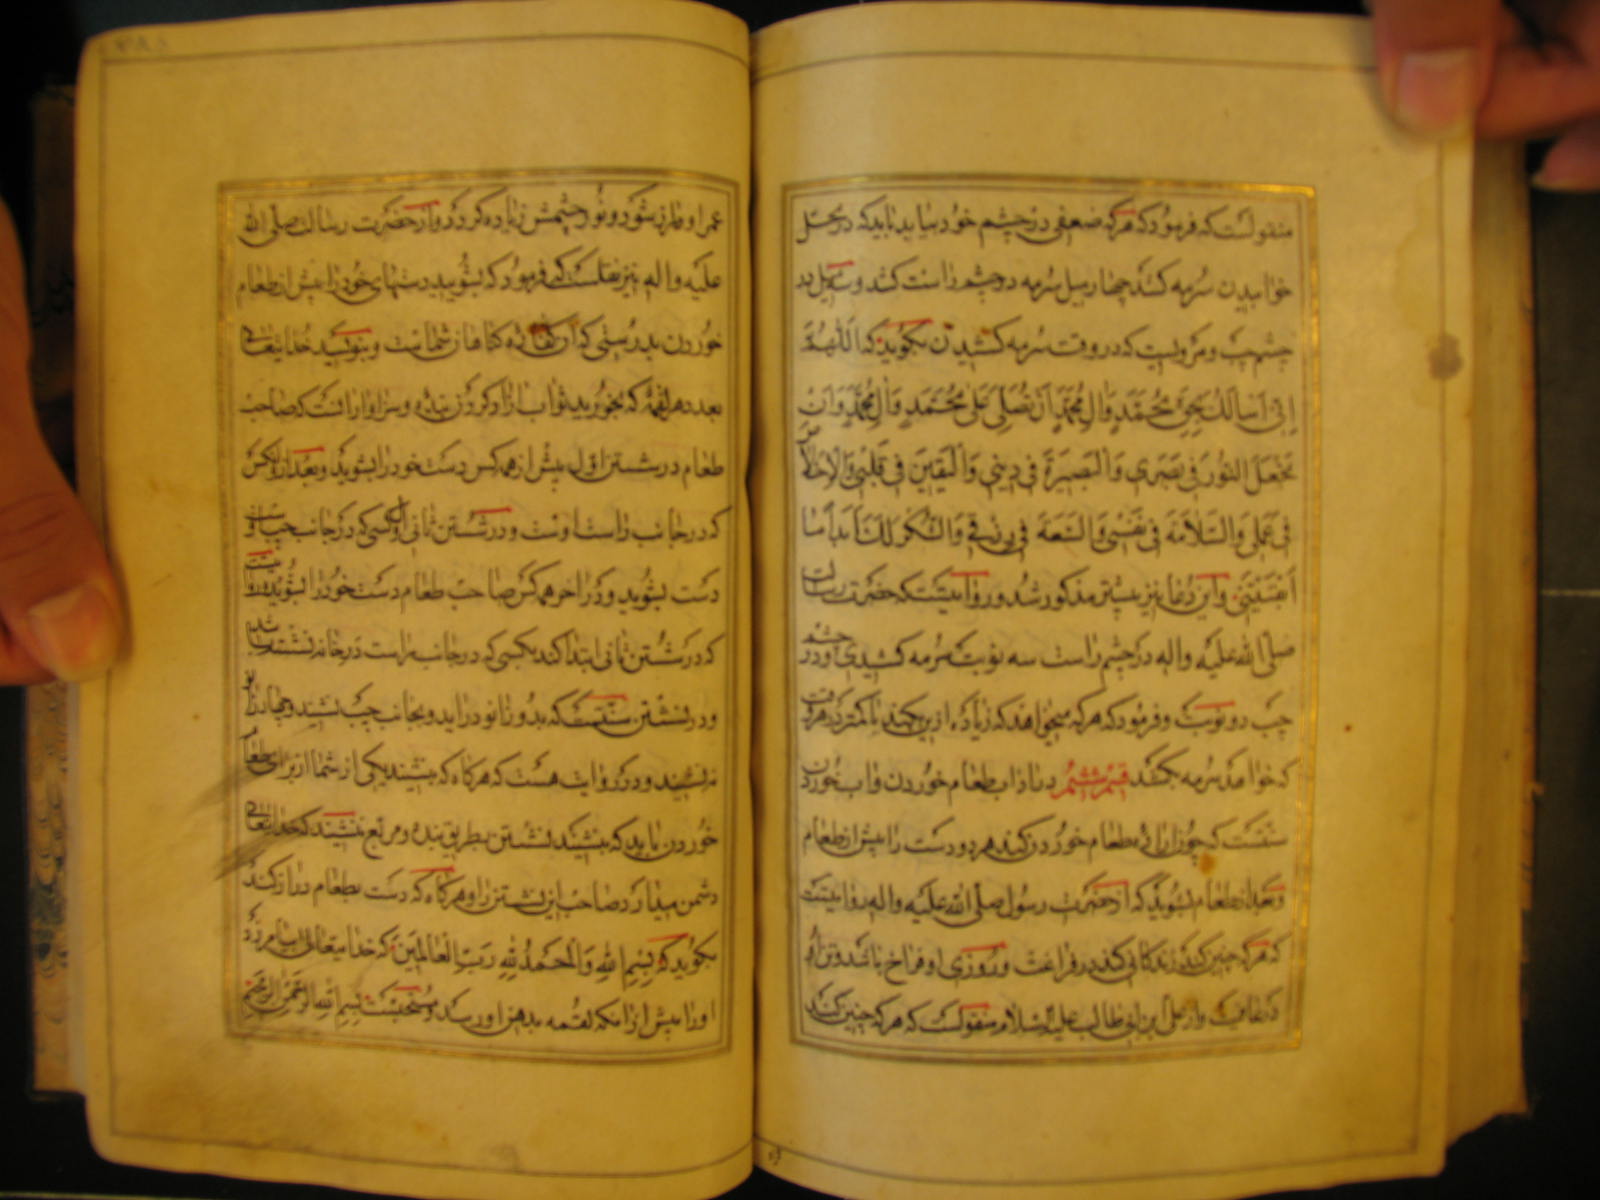 منقولست که فرمود که هرکه ضعفی در چشم خود بیابد باید که در محل
خوابیدن سرمه کشد چهار میل سرمه در چشم راست کشد و سه میل در
چشم چپ و مرویست که در وقت سرمه کشیدن بگوید که اللهم
إنی أسألك بحق محمد وآل محمد أن تصلی علی محمد وآل محمد وأن
تجعل النور فی بصری والبصیرة فی دینی والیقین فی قلبی والإخلاص
فی عملی والسلامة فی نفسی والسعة فی رزقی والشکر لك أبدا ما
أبقیتنی و این دعا نیز بیشتر مذکور شد و روایتست که حضرت رسالت
صلی الله علیه واله در چشم راست سه نوبت سرمه کشیدی و در چشم
چپ دو نوبت و فرمود که هرکه میخواهد که زیاده ازین کند یا کمتر در هر وقت
که خواهد سرمه بکشد قسم ششم در آداب طعام خوردن و اب خوردن
سنتست که چون اراده طعام خوردن کند هر دو دست را پیش از طعام
و بعد از طعام بشوید که از حضرت رسول صلی الله علیه واله روایتست
که هرکه چنین کند زندگانی کند در فراغت و روزی او فراخ باشد و تن او
در عافیت و از علی ابن ابی طالب علیه السلام منقولست که هرکه چنین کند
عمر او دراز شود و نور چشمش زیاده گردد و از حضرت رسالت صلی الله
علیه واله نیز نقلست که فرمود که بشویید دستهای خود را پیش از طعام
خوردن بدرستی که آن کفاره گناهان شماست و بنویسد خدایتعالی
بعدد هر لقمه که بخورید ثواب ازاد کردن بنده و سزاوار انست که صاحب
طعام در شستن اول پیش از همه کس دست خود را بشوید و بعد از و انکس
که در جانب راست اوست و در شستن ثانی اول کسی که در جانب چپ اوست
دست بشوید و در اخر همه کس صاحب طعام دست خود را بشوید و روایتست
که در شستن ثانی ابتدا کند بکسی که در جانب راست در خانه نشسته باشد
و در نشستن سنتست که بدو زانو در اید و بجانب چپ نشیند و چهار زانو
ننشیند و در روایت هست که هرگاه که بنشیند یکی از شما از برای طعام
خوردن باید که بنشیند نشستن بطریق بنده و مربع ننشیند که خدایتعالی
دشمن میدارد صاحب این نشستن را و هرگاه که دست بطعام دراز کند
بگوید که بسم الله والحمد لله رب العالمین که خدایتعالی بیامرزد
او را پیش از انکه لقمه بدهن او رسد و مستحبست بسم الله الرحمن الرحیم